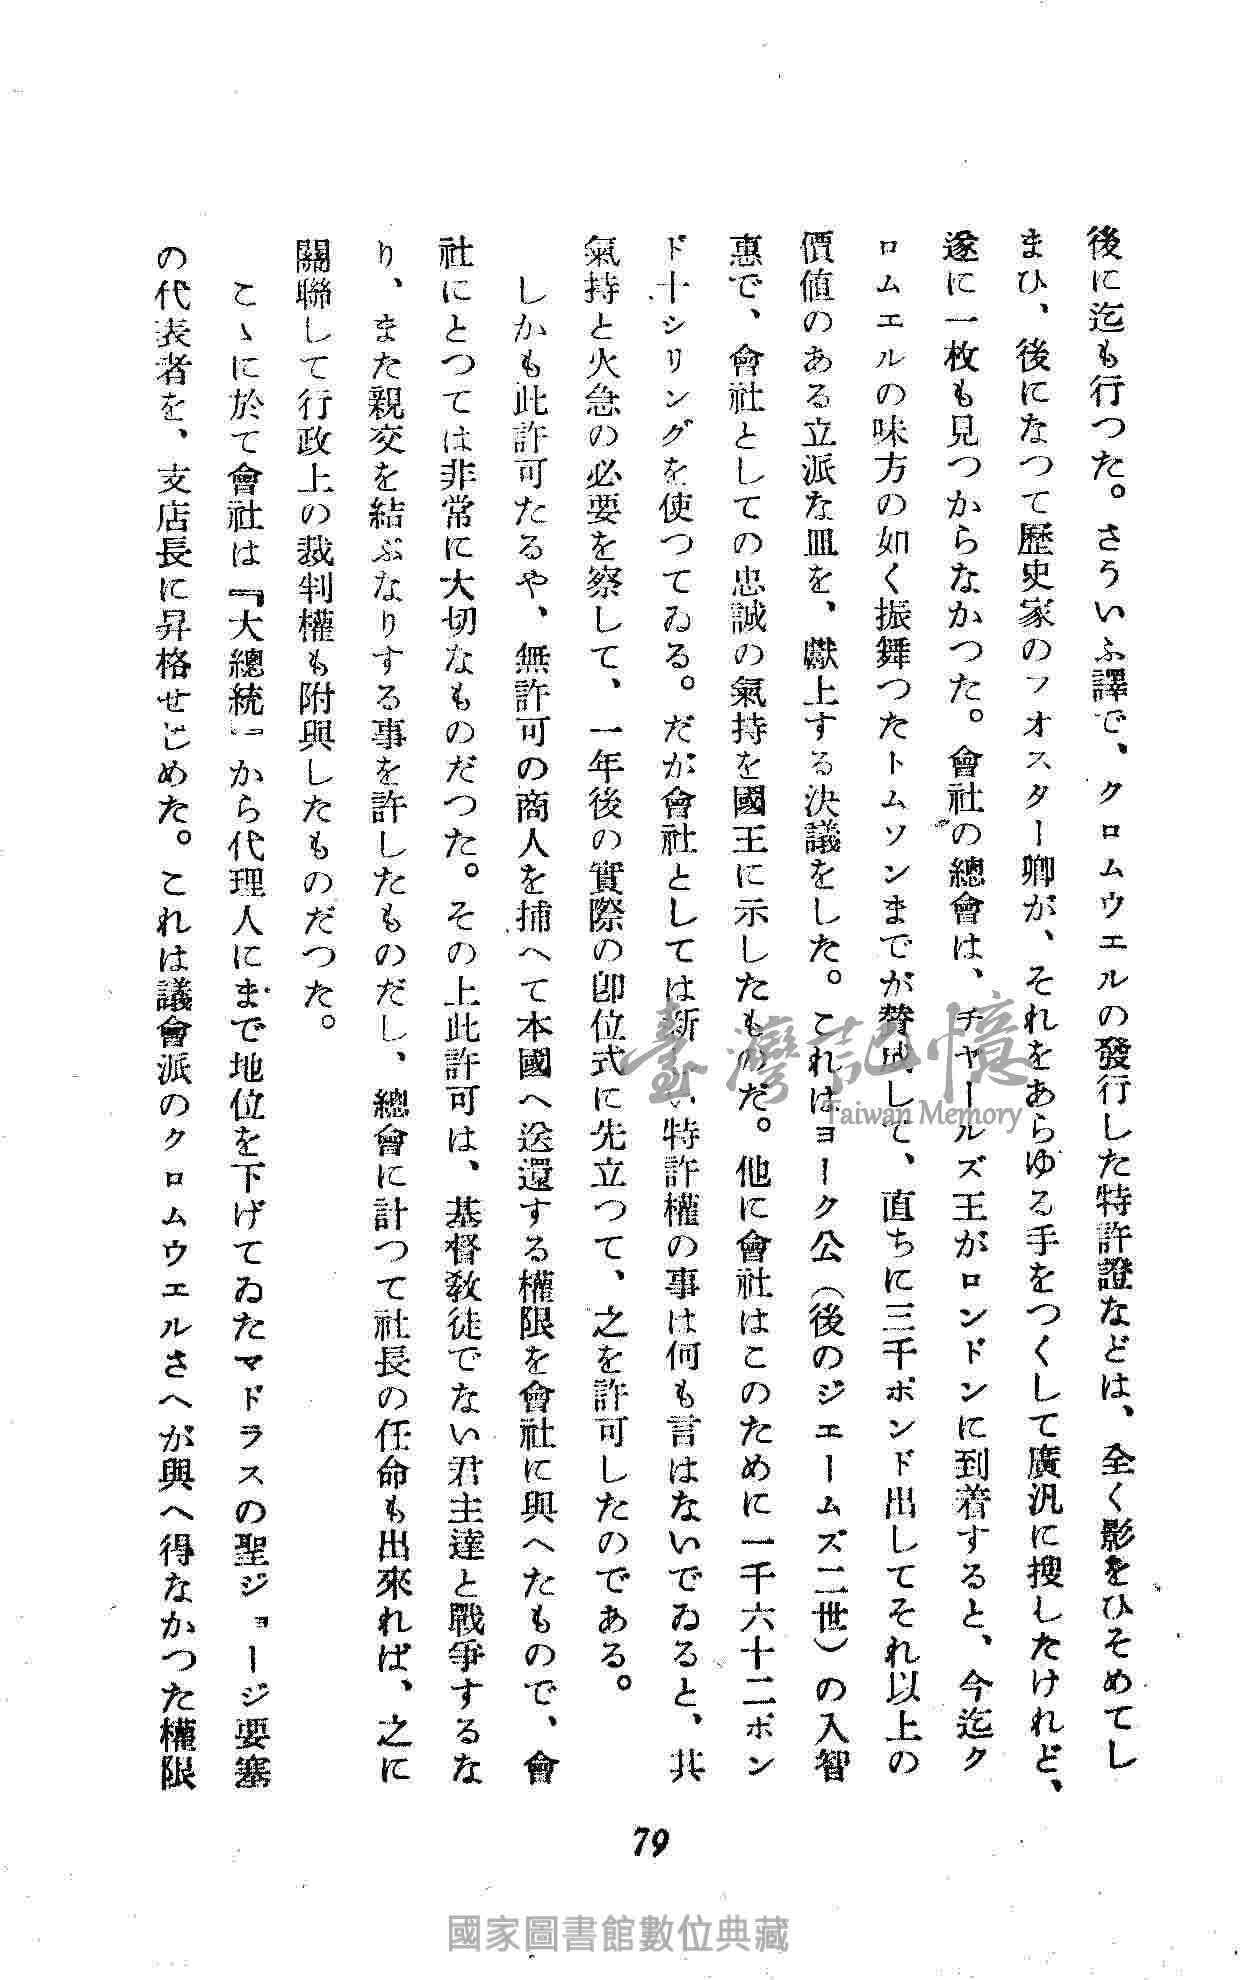 後に迄も行つた。さういふ譯で、クロムウエルの發行した特許證などは、全く影をひそめてし
まひ、後になつて歷史家のフオスター卿が、それをあらゆる手をつくして廣汎に搜したけれど、
遂に一枚も見つからなかつた。會社の總會は、チヤールズ王がロンドンに到着すると、今迄ク
ロムエルの味方の如く振舞つたトムソンまでが賛成して、直ちに三千ポンド出してそれ以上の
價値のある立派な皿を、獻上する決議をした。これはヨーク公（後のジエームズ二世）の入智
惠で、會社としての忠誠の氣持を國王に示したものだ。他に會社はこのために一千六十二ポン
ド十シリングを使つてゐる。だが會社としては新しい特許權の事は何も言はないでゐると、共
氣持と火急の必要を察して、一年後の實際の卽位式に先立つて、之を許可したのである。
しかも此許可たるや、無許可の商人を捕へて本國へ送還する權限を會社に與へたもので、會
社にとつては非常に大切なものだつた。その上此許可は、基督敎徒でない君主達と戰爭するな
り、また親交を結ぶなりする事を許したものだし、總會に計つて社長の任命も出來れば、之に
關聯して行政上の裁判權も附與したものだつた。
こゝに於て會社は『大總統』から代理人にまで地位を下げてゐたマドラスの聖ジョージ要塞
の代表者を、支店長に昇格せしめた。これは議會派のクロムウエルさへが與へ得なかつた權限
79
臺灣記憶
Taiwan Memory
國家圖書館數位典藏